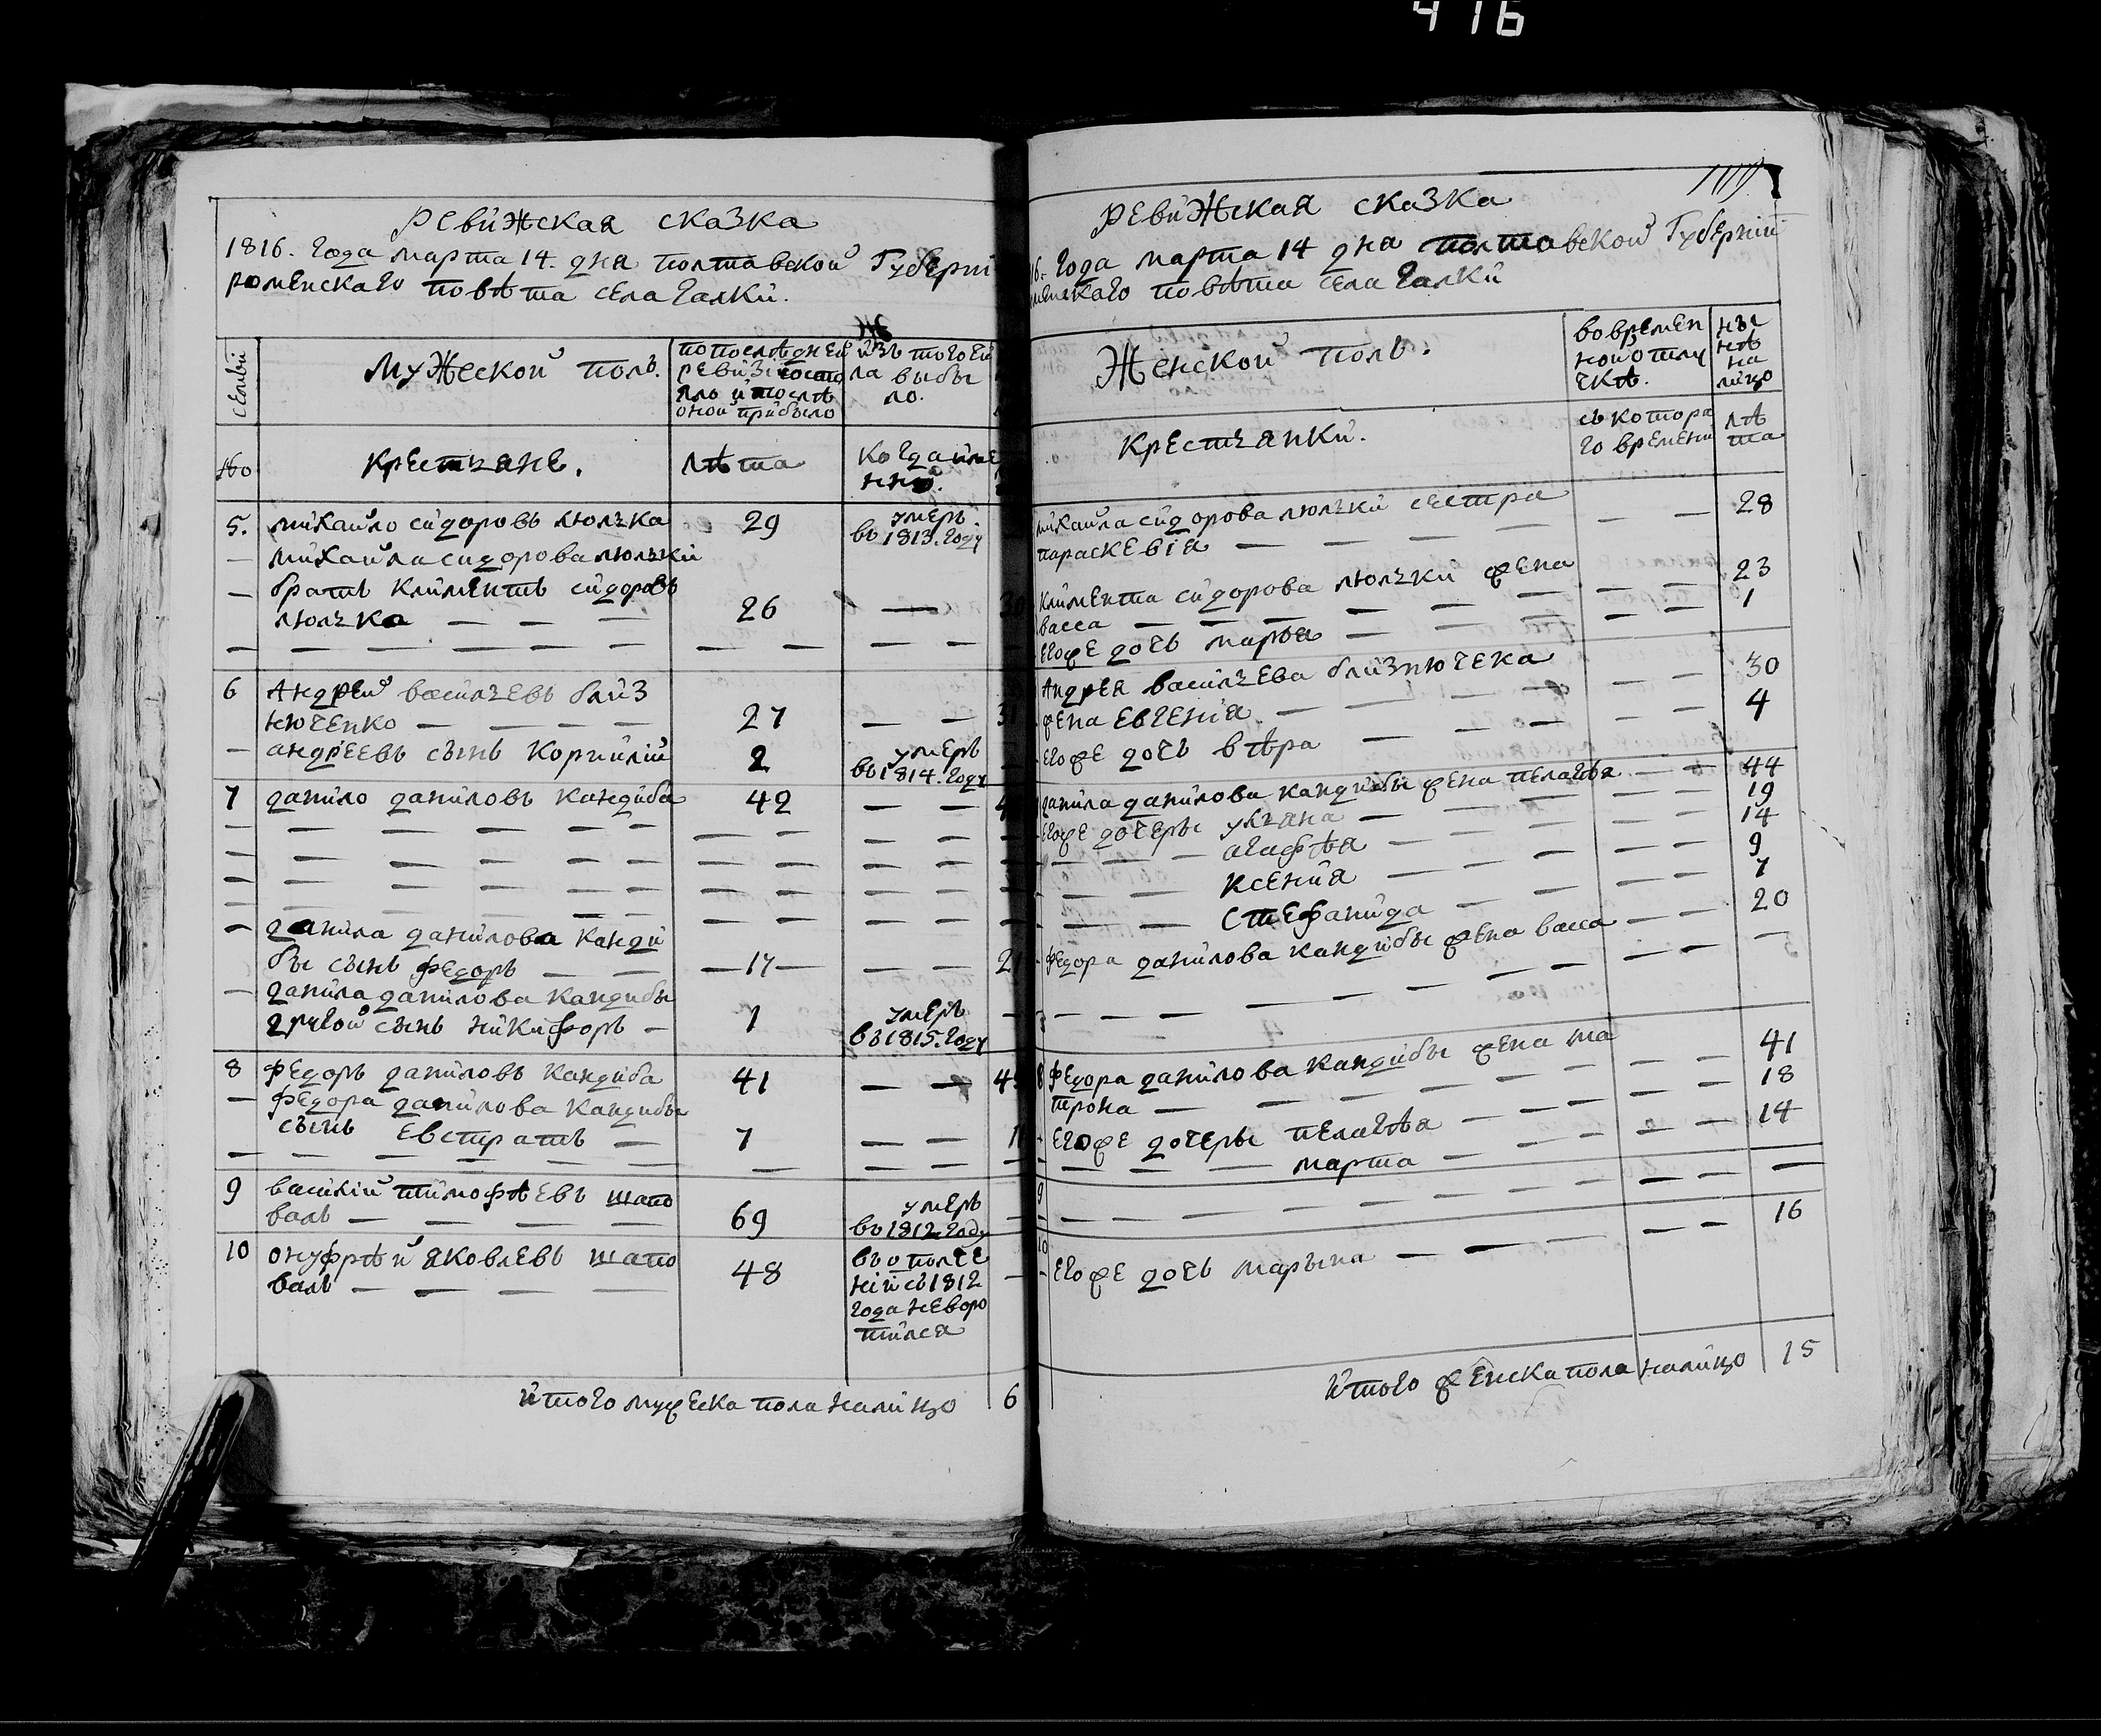 416
Ревижская сказка
1816. года марта 14. дня полтавской Губерні
роменскаго повѣта села Галки.
семьи
Мужеской полъ.
по последней
ревизіи состо
яло и послѣ
оной прибыло
изъ того чи
ла выбы
ло.
No
крестьяне.
лѣта
когда име
нно.
5.
михайло сидоровъ люлька
29
умеръ
въ 1813. году
— михайла сидорова люльки
— братъ климентъ сидоровъ
люлька — — —
26
—
30
6
Андрей васильевъ близ
нюченко — — — —
27
— —
— андреевъ сынъ корнилій
2
умеръ
въ 1814. году
7
данило даниловъ кандиба
42
— —
— данила данилова канди
бы сынъ федоръ — —
— 17 —
— —
— данила данилова кандибы
другой сынъ никифоръ —
1
умеръ
въ 1815. году
8
федоръ даниловъ кандиба
41
— —
— федора данилова кандибы
сынъ евстратъ —
7
— —
9
василій тимофѣевъ шапо
валъ — — — —
69
умеръ
въ 1812 году
10
онуфрѣй яковлевъ шапо
валъ — — — —
48
въ ополче
ніи съ 1812
года неворо
тился
Итого мужеска пола налицо
6
Ревижская сказка
16. года марта 14 дня полтавской Губерніи
менскаго повѣта села Галки
Женской полъ.
во времен
ной отлу
чкѣ.
ны
нѣ
на
лицо
крестьянки.
съ котора
го времени
лѣ
та
михайла сидорова люльки сестра
параскевія — — — —
— —
28
климента сидорова люльки жена
васса — — — — —
— —
23
егоже дочь марья — — —
— —
1
Андрея васильева близнюченка
жена евгенія — — — —
— —
30
егоже дочь вѣра — — —
— —
4
данила данилова кандибы жена пелагѣя
— —
44
егоже дочеры ульяна — — —
19
— — — агафѣя — — —
14
— — — ксения — — —
9
— — — стефанида — —
7
федора данилова кандибы жена васса
— —
20
8
федора данилова кандибы жена ма
трона — — — — —
— —
41
егоже дочеры пелагѣя — — —
18
— — — марта — — —
14
9
— — — — — —
—
10
егоже дочь марьяна — — —
— —
16
Итого женска пола налицо
15